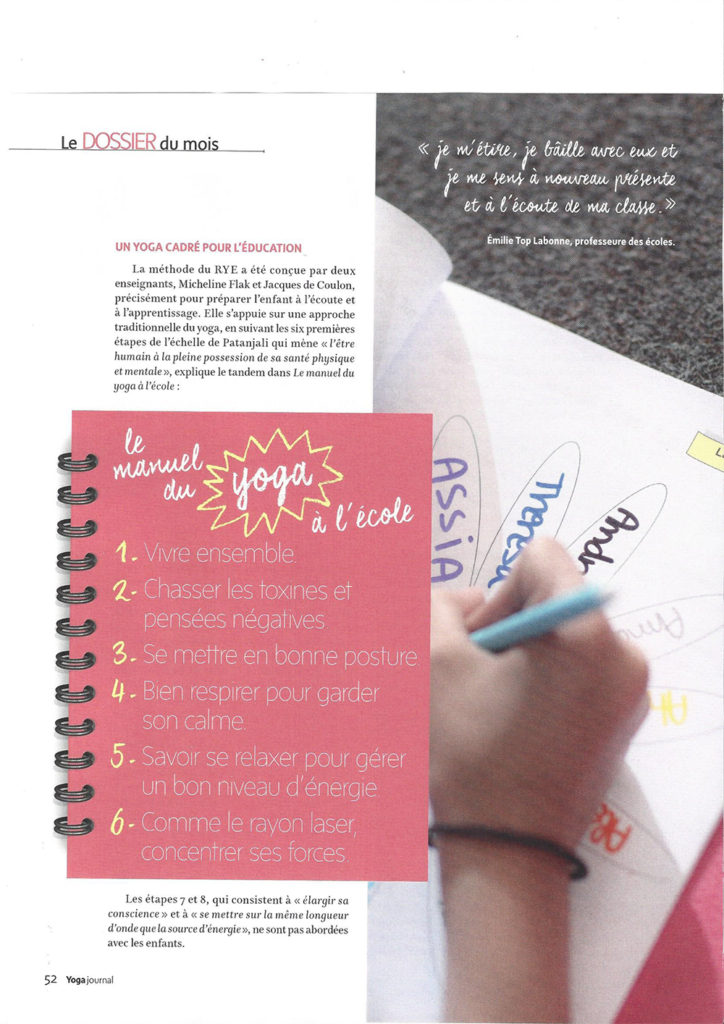 Le DOSSIER du mois
« je m'étire, je bâille avec eux et
je me sens à nouveau présente
et à l'écoute de ma classe. »
Émilie Top Labonne, professeure des écoles.
UN YOGA CADRÉ POUR L'ÉDUCATION
La méthode du RYE a été conçue par deux
enseignants, Micheline Flak et Jacques de Coulon,
précisément pour préparer l'enfant à l'écoute et
à l'apprentissage. Elle s'appuie sur une approche
traditionnelle du yoga, en suivant les six premières
étapes de l'échelle de Patanjali qui mène « l'être
humain à la pleine possession de sa santé physique
et mentale », explique le tandem dans Le manuel du
yoga à l'école :
le
manuel
du yoga
à l'école
1. Vivre ensemble.
2- Chasser les toxines et
pensées négatives
3. Se mettre en bonne posture
4. Bien respirer pour garder
son calme.
5- Savoir se relaxer pour gérer
un bon niveau d'énergie
6- Comme le rayon laser,
concentrer ses forces.
ASSIA
Theresa
Andr
Les étapes 7 et 8, qui consistent à « élargir sa
conscience » et à « se mettre sur la même longueur
d'onde que la source d'énergie », ne sont pas abordées
avec les enfants.
52 Yoga journal